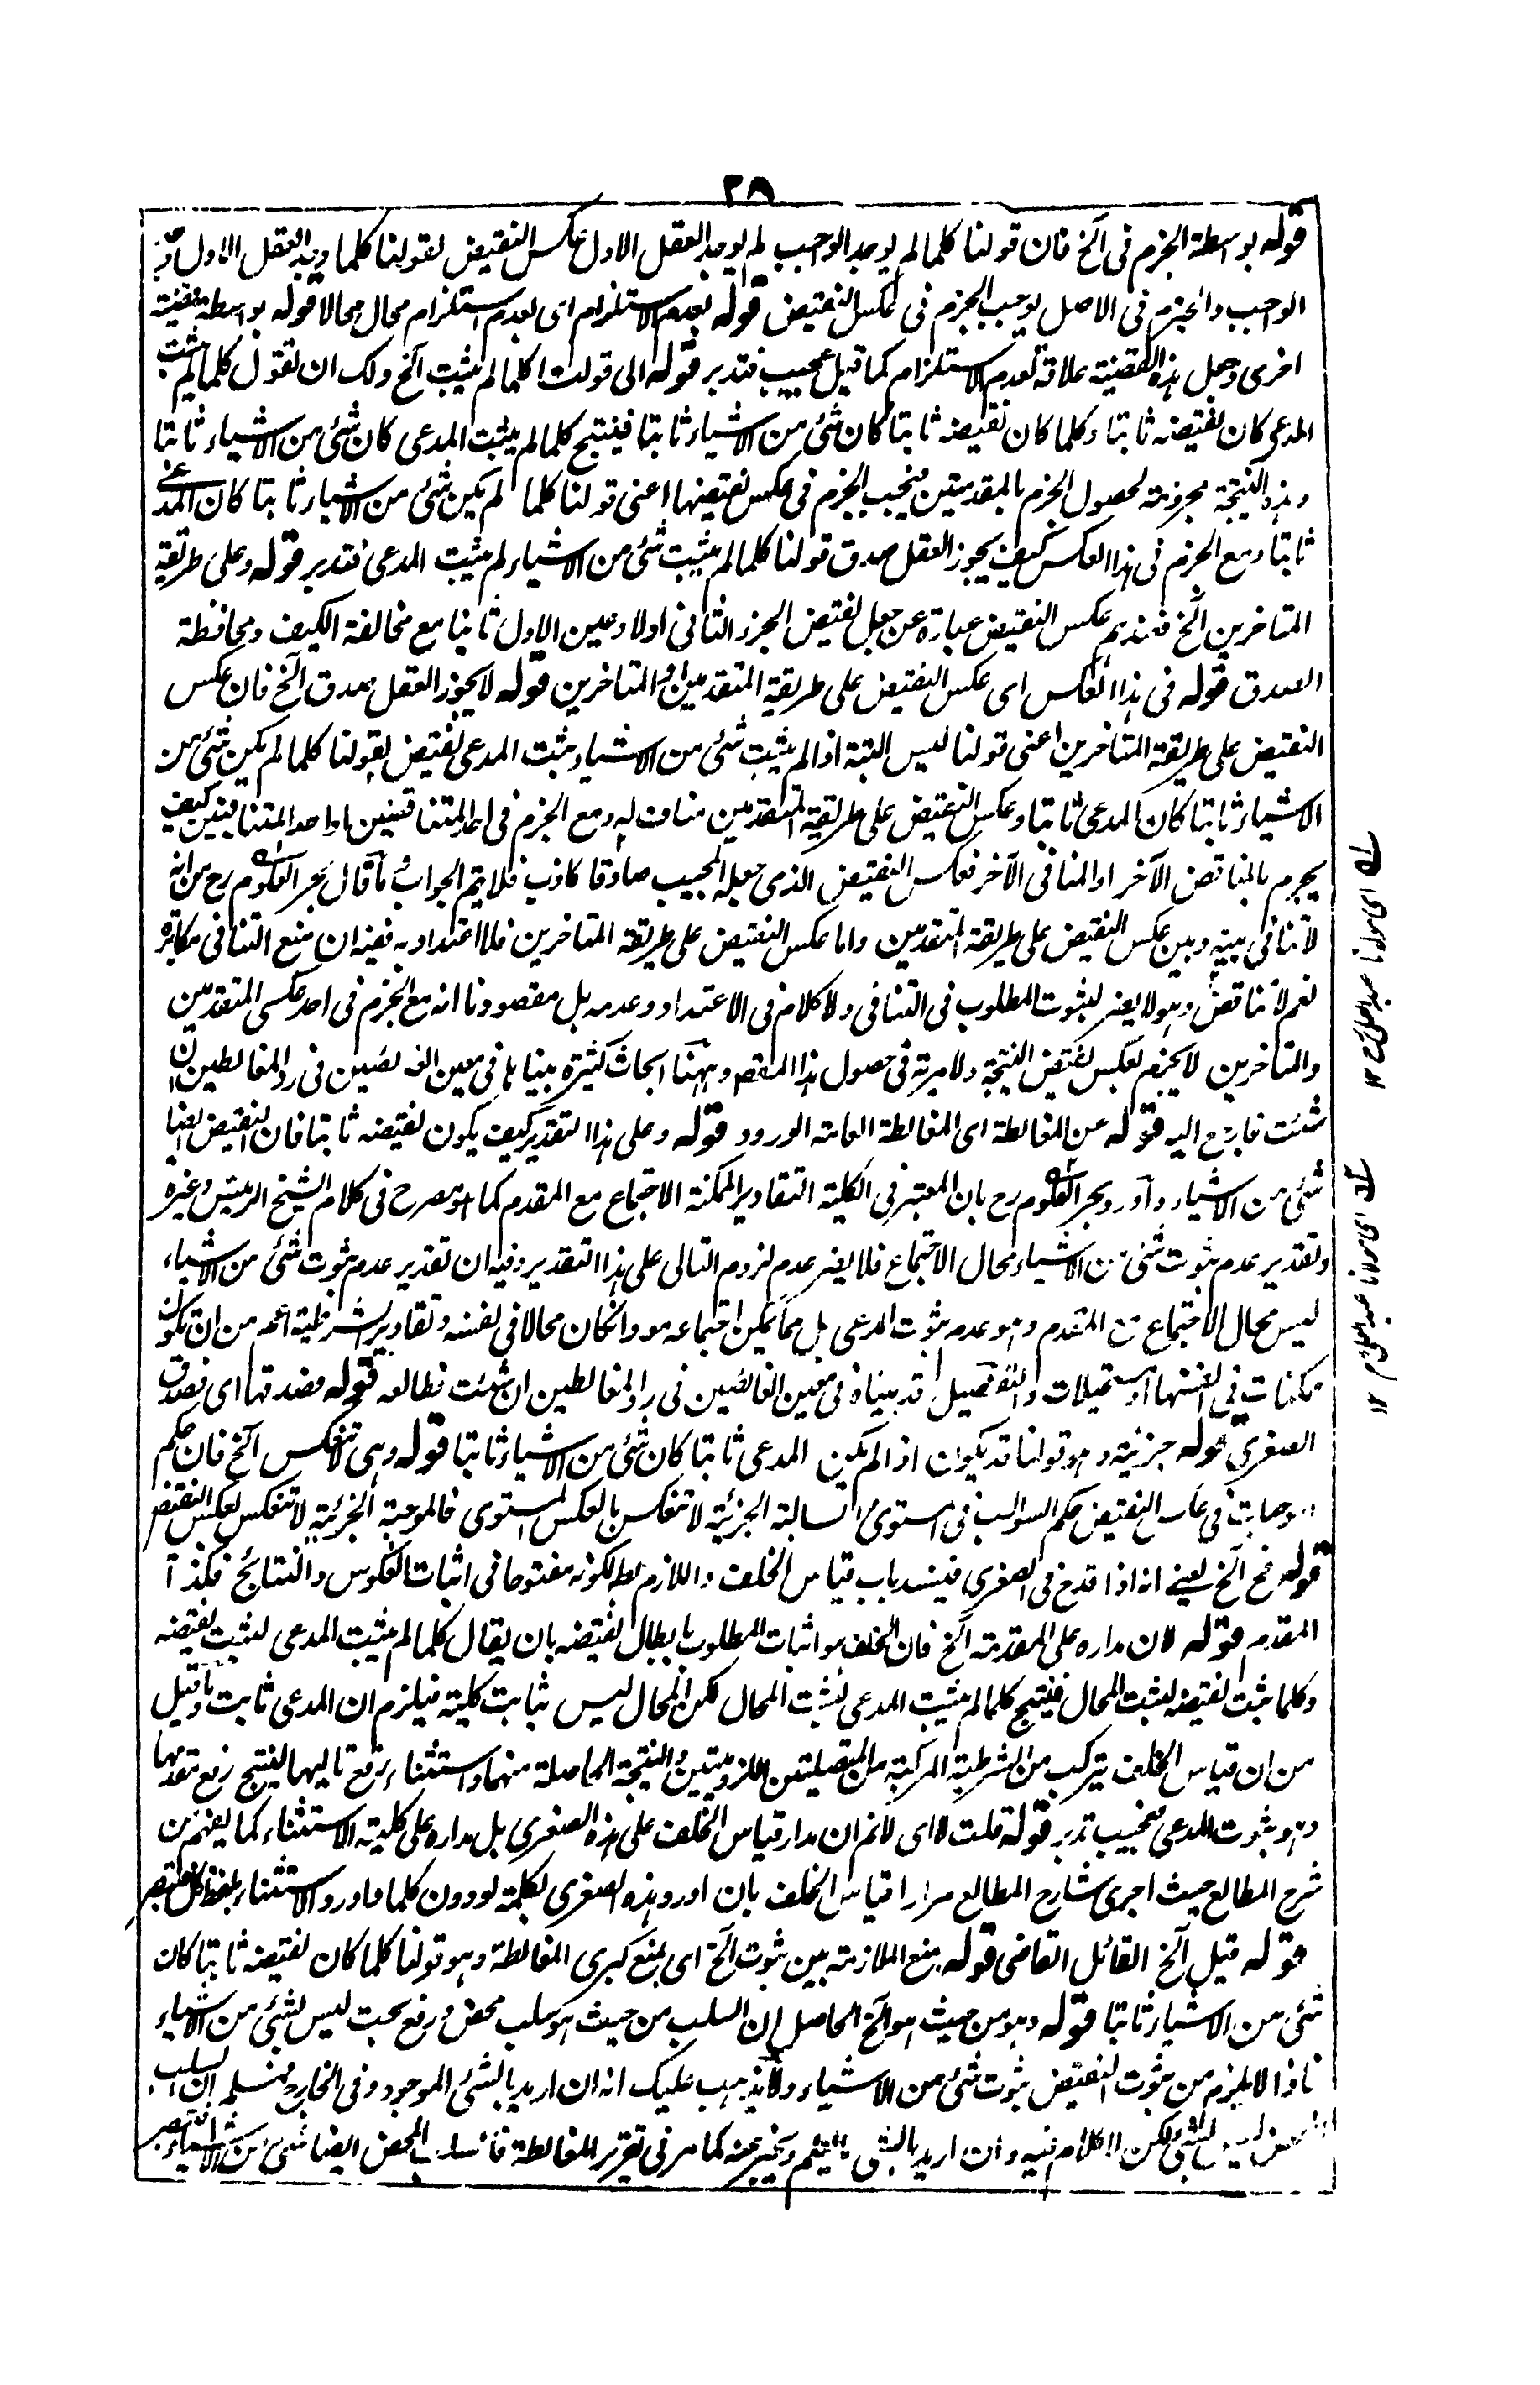 ٢٨
قوله بواسطة الجزم فى آلخ فان قولنا كلما لم يوجد الواجب لم يوجد العقل الاول عكس النقيض لقولنا كلما وجد العقل الاول وجد
الواجب والجزم فى الاصل يوجب الجزم فى عكس النقيض قوله بعدم الاستلزام اى بعدم استلزام محال محالا قوله بواسطة قضية
اخرى وجعل هذه القضية علاقة لعدم الاستلزام كما قيل عجيب فتدبر قوله الى قولنا كلما لم يثبت آلخ ولك ان تقول كلما لم يثبت
المدعى كان نقيضه ثابتا وكلما كان نقيضه ثابتا كان شئ من الاشياء ثابتا فينتج كلما لم يثبت المدعى كان شئ من الاشياء ثابتا
وهذه النتيجة مجزومة لحصول الجزم بالمقدمتين فيجب الجزم فى عكس نقيضها اعنى قولنا كلما لم يكن شئ من الاشياء ثابتا كان المدعى
ثابتا ومع الجزم فى هذا العكس كيف يجوز العقل صدق قولنا كلما لم يثبت شئ من الاشياء لم يثبت المدعى فتدبر قوله وعلى طريقة
المتاخرين آلخ فعندهم عكس النقيض عبارة عن جعل نقيض الجزء الثانى اولا وعين الاول ثانيا مع مخالفة الكيف ومحافظة
الصدق قوله فى هذا العكس اى عكس النقيض على طريقة المتقدمين او المتاخرين قوله لا يجوز العقل صدق آلخ فان عكس
النقيض على طريقة المتاخرين اعنى قولنا ليس البتة اذا لم يثبت شئ من الاشياء يثبت المدعى نقيض لقولنا كلما لم يكن شئ من
الاشياء ثابتا كان المدعى ثابتا وعكس النقيض على طريقة المتقدمين مناف له ومع الجزم فى احد المتناقضين او احد المتنافيين كيف
يجزم بالمناقض الآخر او المنافى الآخر فعكس النقيض الذى جعله المجيب صادقا كاذب فلا يتم الجواب وما قال بحر العلوم رح من انه
لا تنافى بينه وبين عكس النقيض على طريقة المتقدمين واما عكس النقيض على طريقة المتاخرين فلا اعتداد به ففيه ان منع التنافى مكابرة
نعم لا تناقض وهو لا يضر لثبوت المطلوب فى التنافى ولا كلام فى الاعتداد وعدمه بل مقصودنا انه مع الجزم فى احد عكسى المتقدمين
والمتاخرين لا يجزم بعكس نقيض النتيجة ولا مرية فى حصول هذا المقصد وههنا ابحاث كثيرة بيناها فى معين الغائصين فى رد المغالطين ان
شئت فارجع اليه قوله عن المغالطة اى المغالطة العامة الورود قوله وعلى هذا التقدير كيف يكون نقيضه ثابتا فان النقيض ايضا
شئ من الاشياء واورد بحر العلوم رح بان المعتبر فى الكلية التقادير الممكنة الاجتماع مع المقدم كما هو مصرح فى كلام الشيخ الرئيس وغيره
وتقدير عدم ثبوت شئ من الاشياء محال الاجتماع فلا يضر عدم لزوم التالى على هذا التقدير وفيه ان تقدير عدم ثبوت شئ من الاشياء
ليس محال الاجتماع مع المقدم وهو عدم ثبوت المدعى بل مما يمكن اجتماعه معه وان كان محالا فى نفسه وتقادير الشرطية اعم من ان تكون
ممكنات فى انفسها او مستحيلات والتفصيل قد بيناه فى معين الغائصين فى رد المغالطين ان شئت فطالعه قوله فصدقها اى فصدق
الصغرى قوله جزئية وهو قولنا قد يكون اذا لم يكن المدعى ثابتا كان شئ من الاشياء ثابتا قوله وهى لا تنعكس آلخ فان حكم
الموجبات فى عكس النقيض حكم السوالب فى المستوى والسالبة الجزئية لا تنعكس بالعكس المستوى فالموجبة الجزئية لا تنعكس بعكس النقيض
قوله فح آلخ يعنى انه اذا قدح فى الصغرى فينسد باب قياس الخلف واللازم بط لكونه مفتوحا فى اثبات العكوس والنتائج فكذا
المقدم قوله لان مداره على المقدمة آلخ فان الخلف هو اثبات المطلوب بابطال نقيضه بان يقال كلما لم يثبت المدعى لثبت نقيضه
وكلما ثبت نقيضه لثبت المحال فينتج كلما لم يثبت المدعى لثبت المحال لكن المحال ليس بثابت كلية فيلزم ان المدعى ثابت وما قيل
من ان قياس الخلف يتركب من الشرطية المركبة من المتصلتين اللزوميتين والنتيجة الحاصلة منهما واستثناء رفع تاليها لينتج رفع مقدمها
وهو ثبوت المدعى فعجيب تدبر قوله قلت لا اى لا نم ان مدار قياس الخلف على هذه الصغرى بل مداره على كلية الاستثناء كما يفهم من
شرح المطالع حيث اجرى شارح المطالع مرارا قياس الخلف بان اورد هذه الصغرى بكلمة لو دون كلما واورد الاستثناء بلفظ كل فتبصر
قوله قيل آلخ القائل القاضى قوله بمنع الملازمة بين ثبوت آلخ اى بمنع كبرى المغالطة وهو قولنا كلما كان نقيضه ثابتا كان
شئ من الاشياء ثابتا قوله وهو من حيث هو آلخ الحاصل ان السلب من حيث هو سلب محض ورفع بحت ليس بشئ من الاشياء
فاذا لا يلزم من ثبوت النقيض ثبوت شئ من الاشياء ولا يذهب عليك انه ان اريد بالشئ الموجود فى الخارج فمسلم ان السلب
المحض ليس بشئ لكن لا كلام فيه وان اريد بالشئ ما يعلم ويخبر عنه كما مر فى تقرير المغالطة فالسلب المحض ايضا شئ من الاشياء فتبصر
له اى مولانا عبد العلى رح ١٢
له اى مولانا عبد العلى رح ١٢